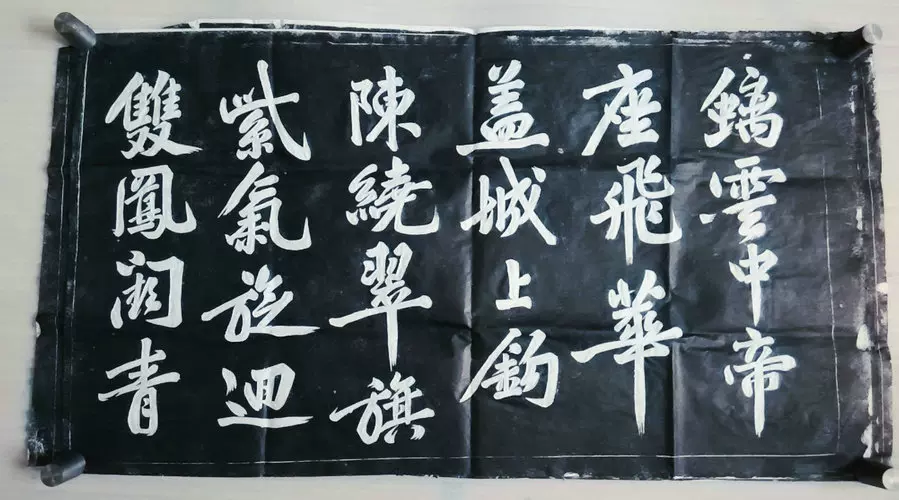 螭雲中帝
座飛華
盖城上鈎
陳繞翠旗
紫氣旋迴
雙鳳闕青